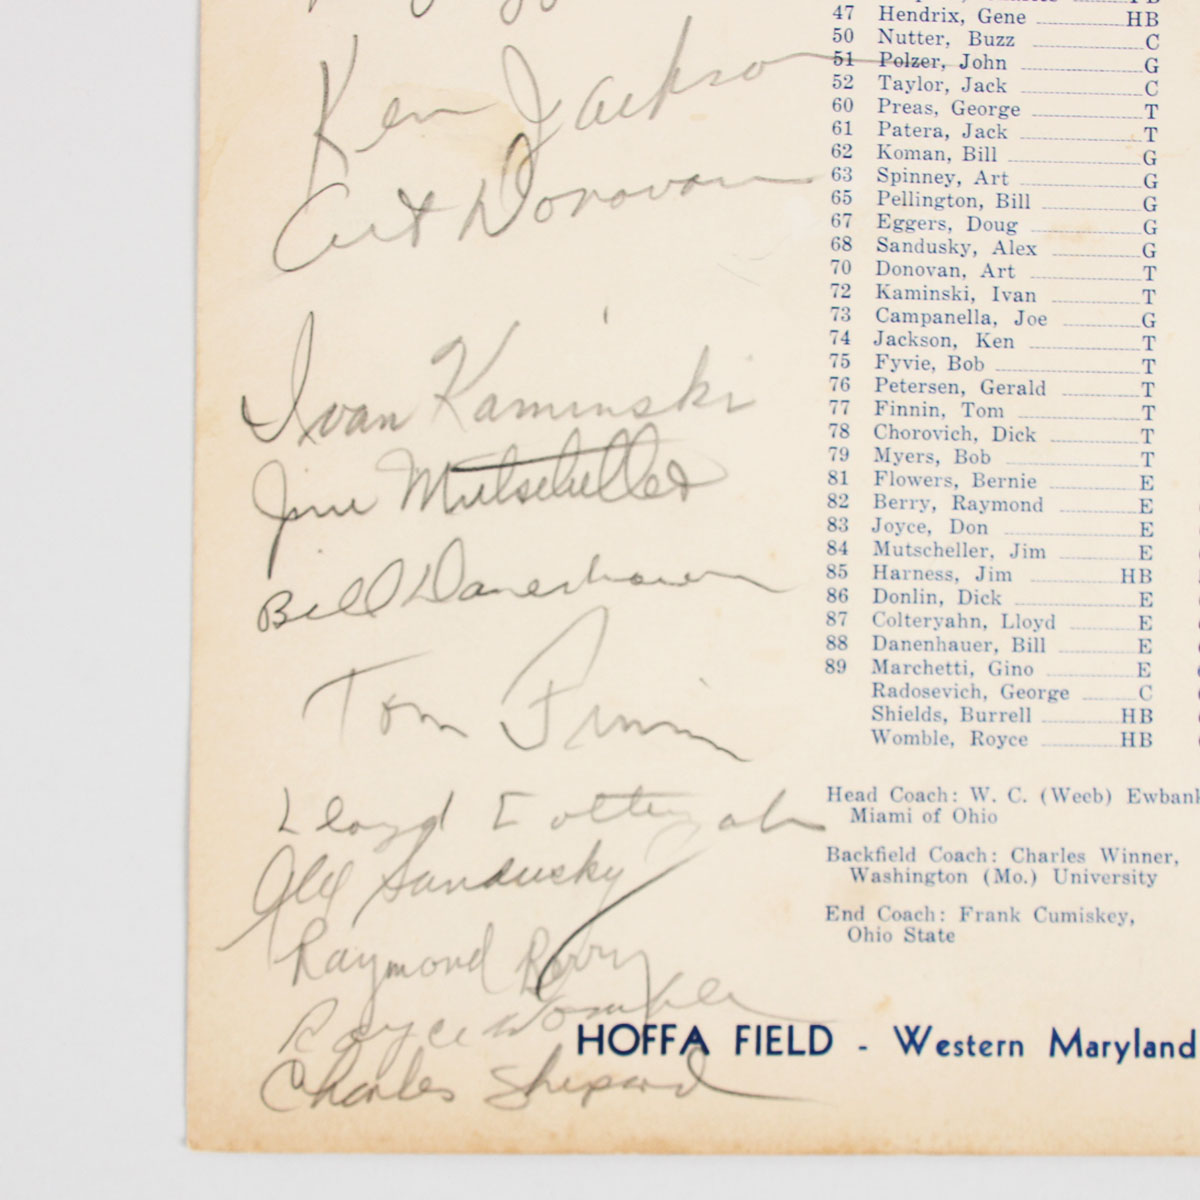 Ken Jackson
Art Donovan
Ivan Kaminski
Jim Mutscheller
Bill Danenhauer
Tom Finnin
Lloyd Colteryahn
Alex Sandusky
Raymond Berry
Royce Womble
Charles Shepard
47 Hendrix, Gene HB
50 Nutter, Buzz C
51 Polzer, John G
52 Taylor, Jack C
60 Preas, George T
61 Patera, Jack T
62 Koman, Bill G
63 Spinney, Art G
65 Pellington, Bill G
67 Eggers, Doug G
68 Sandusky, Alex G
70 Donovan, Art T
72 Kaminski, Ivan T
73 Campanella, Joe G
74 Jackson, Ken T
75 Fyvie, Bob T
76 Petersen, Gerald T
77 Finnin, Tom T
78 Chorovich, Dick T
79 Myers, Bob T
81 Flowers, Bernie E
82 Berry, Raymond E
83 Joyce, Don E
84 Mutscheller, Jim E
85 Harness, Jim HB
86 Donlin, Dick E
87 Colteryahn, Lloyd E
88 Danenhauer, Bill E
89 Marchetti, Gino E
Radosevich, George C
Shields, Burrell HB
Womble, Royce HB
Head Coach: W. C. (Weeb) Ewbank
Miami of Ohio
Backfield Coach: Charles Winner,
Washington (Mo.) University
End Coach: Frank Cumiskey,
Ohio State
HOFFA FIELD - Western Maryland